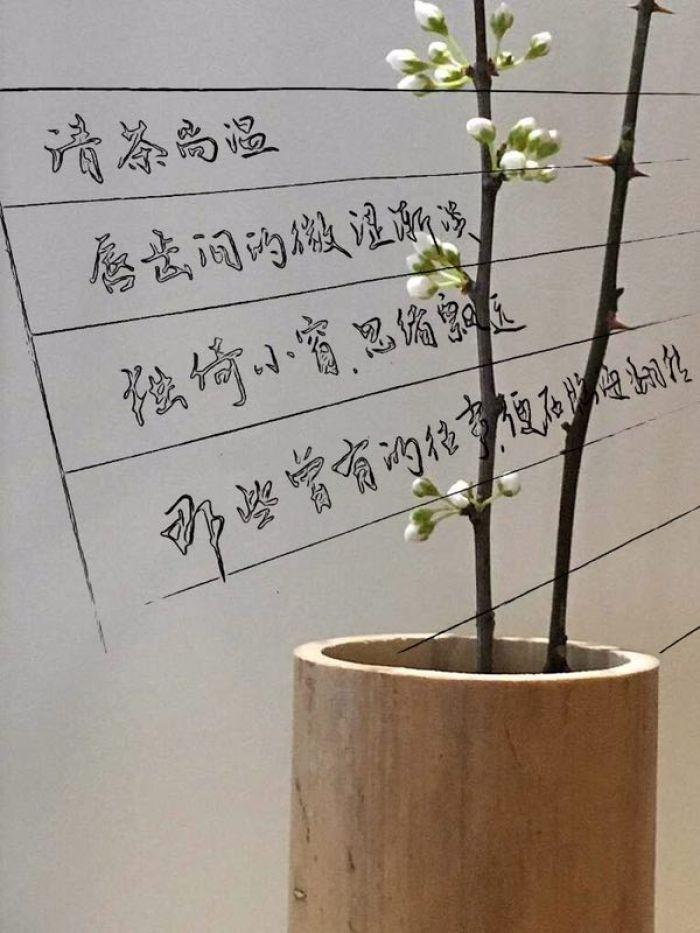 清茶尚温
唇齿间的微涩渐淡、
独倚小窗、思绪飘远
那些曾有的往事，便在脑海翻转